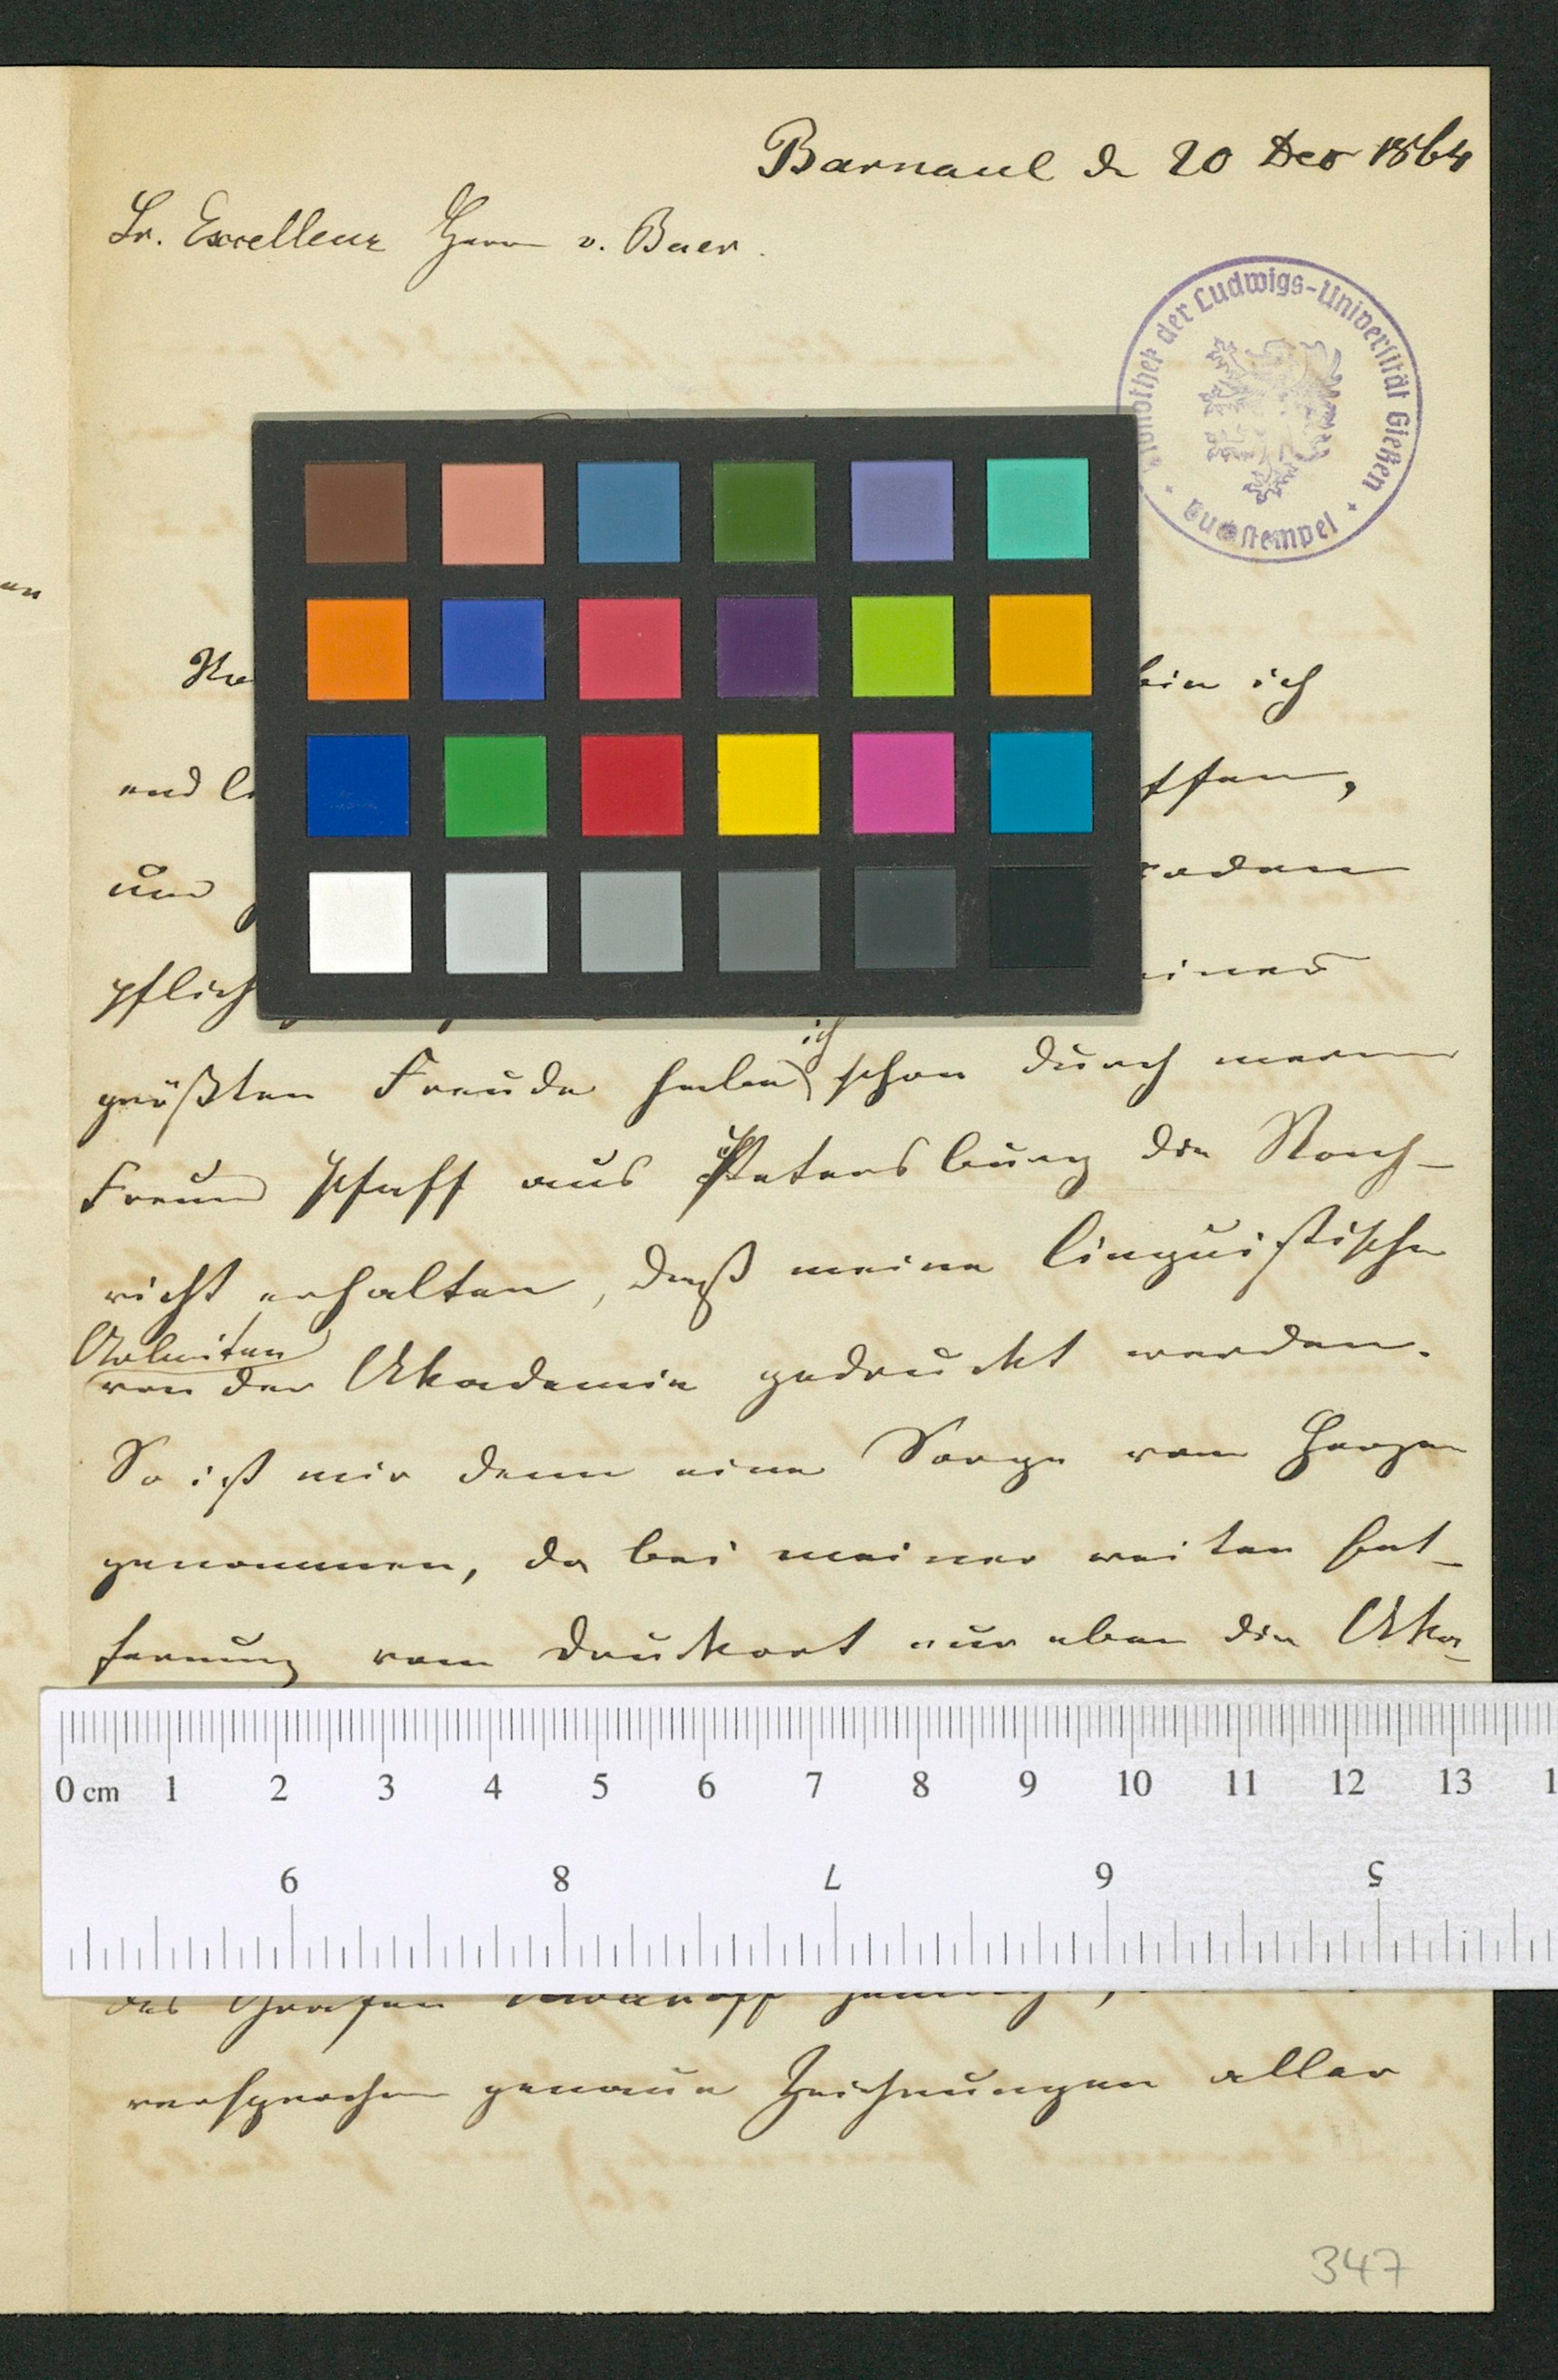 Barnaul d. 20 Dec 1864
Sr. Excellenz Herrn v. Baer.
Bibliothek der Ludwigs-Universität Gießen
Buchstempel
bin ich
um
größten Freude habe ich schon durch meinen
Freund Pfaff aus Petersburg die Nach-
richt erhalten, daß meine linguistischen
Arbeiten
von der Akademie gedruckt werden.
So ist mir denn eine Sorge vom Herzen
genommen, da bei meiner weiten Ent-
fernung vom Druckort nur eben die Aka-
0 cm 1 2 3 4 5 6 7 8 9 10 11 12 13 1
9 8 7 6 5
des Grafen
versprochen genaue Zeichnungen aller
347